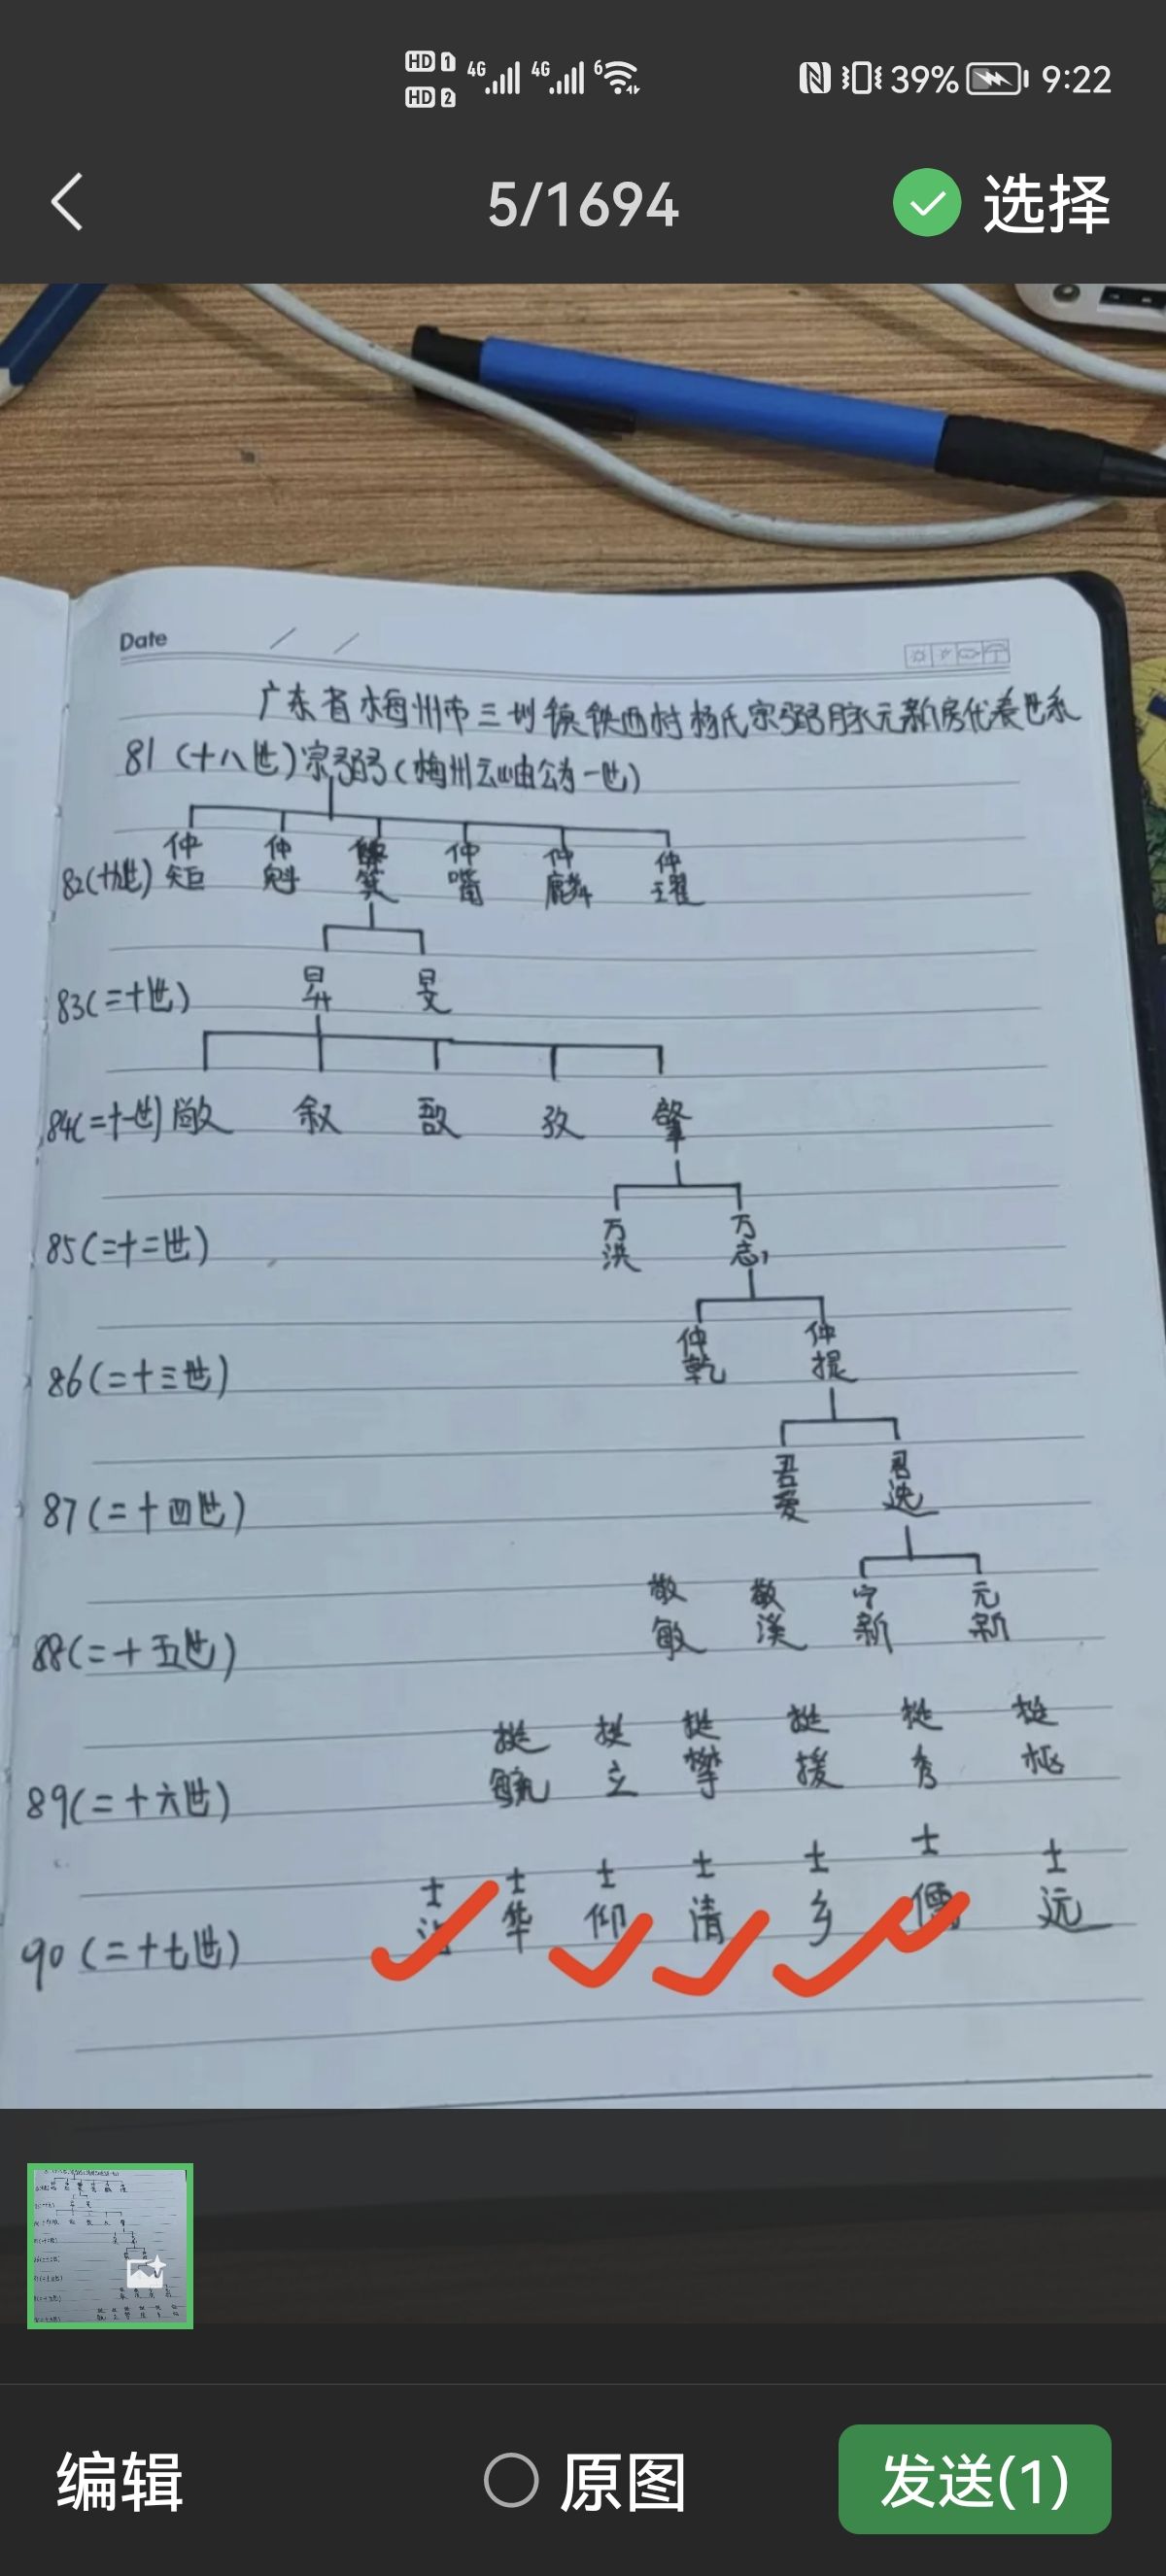 HD 1 4G 4G 6 39% 9:22
HD 2
5/1694 选择
Date / /
广东省梅州市三圳镇铁西村杨氏宗弼脉元新房代表世系
81（十八世）宗弼（梅州云岫公为一世）
仲矩 仲魁 箕 仲嘴 仲麟 仲耀
82（十九世）
83（二十世） 昇 旻
84（二十一世） 敞 叙 敔 孜 肇
85（二十二世） 万洪 万志
86（二十三世） 仲乾 仲提
87（二十四世） 君爱 君选
88（二十五世） 敬敏 敬溪 宁新 元新
89（二十六世） 挺毓 挺立 挺攀 挺援 挺秀 挺枢
90（二十七世） 士 士华 士仰 士清 士乡 士儒 士远
编辑 原图 发送(1)